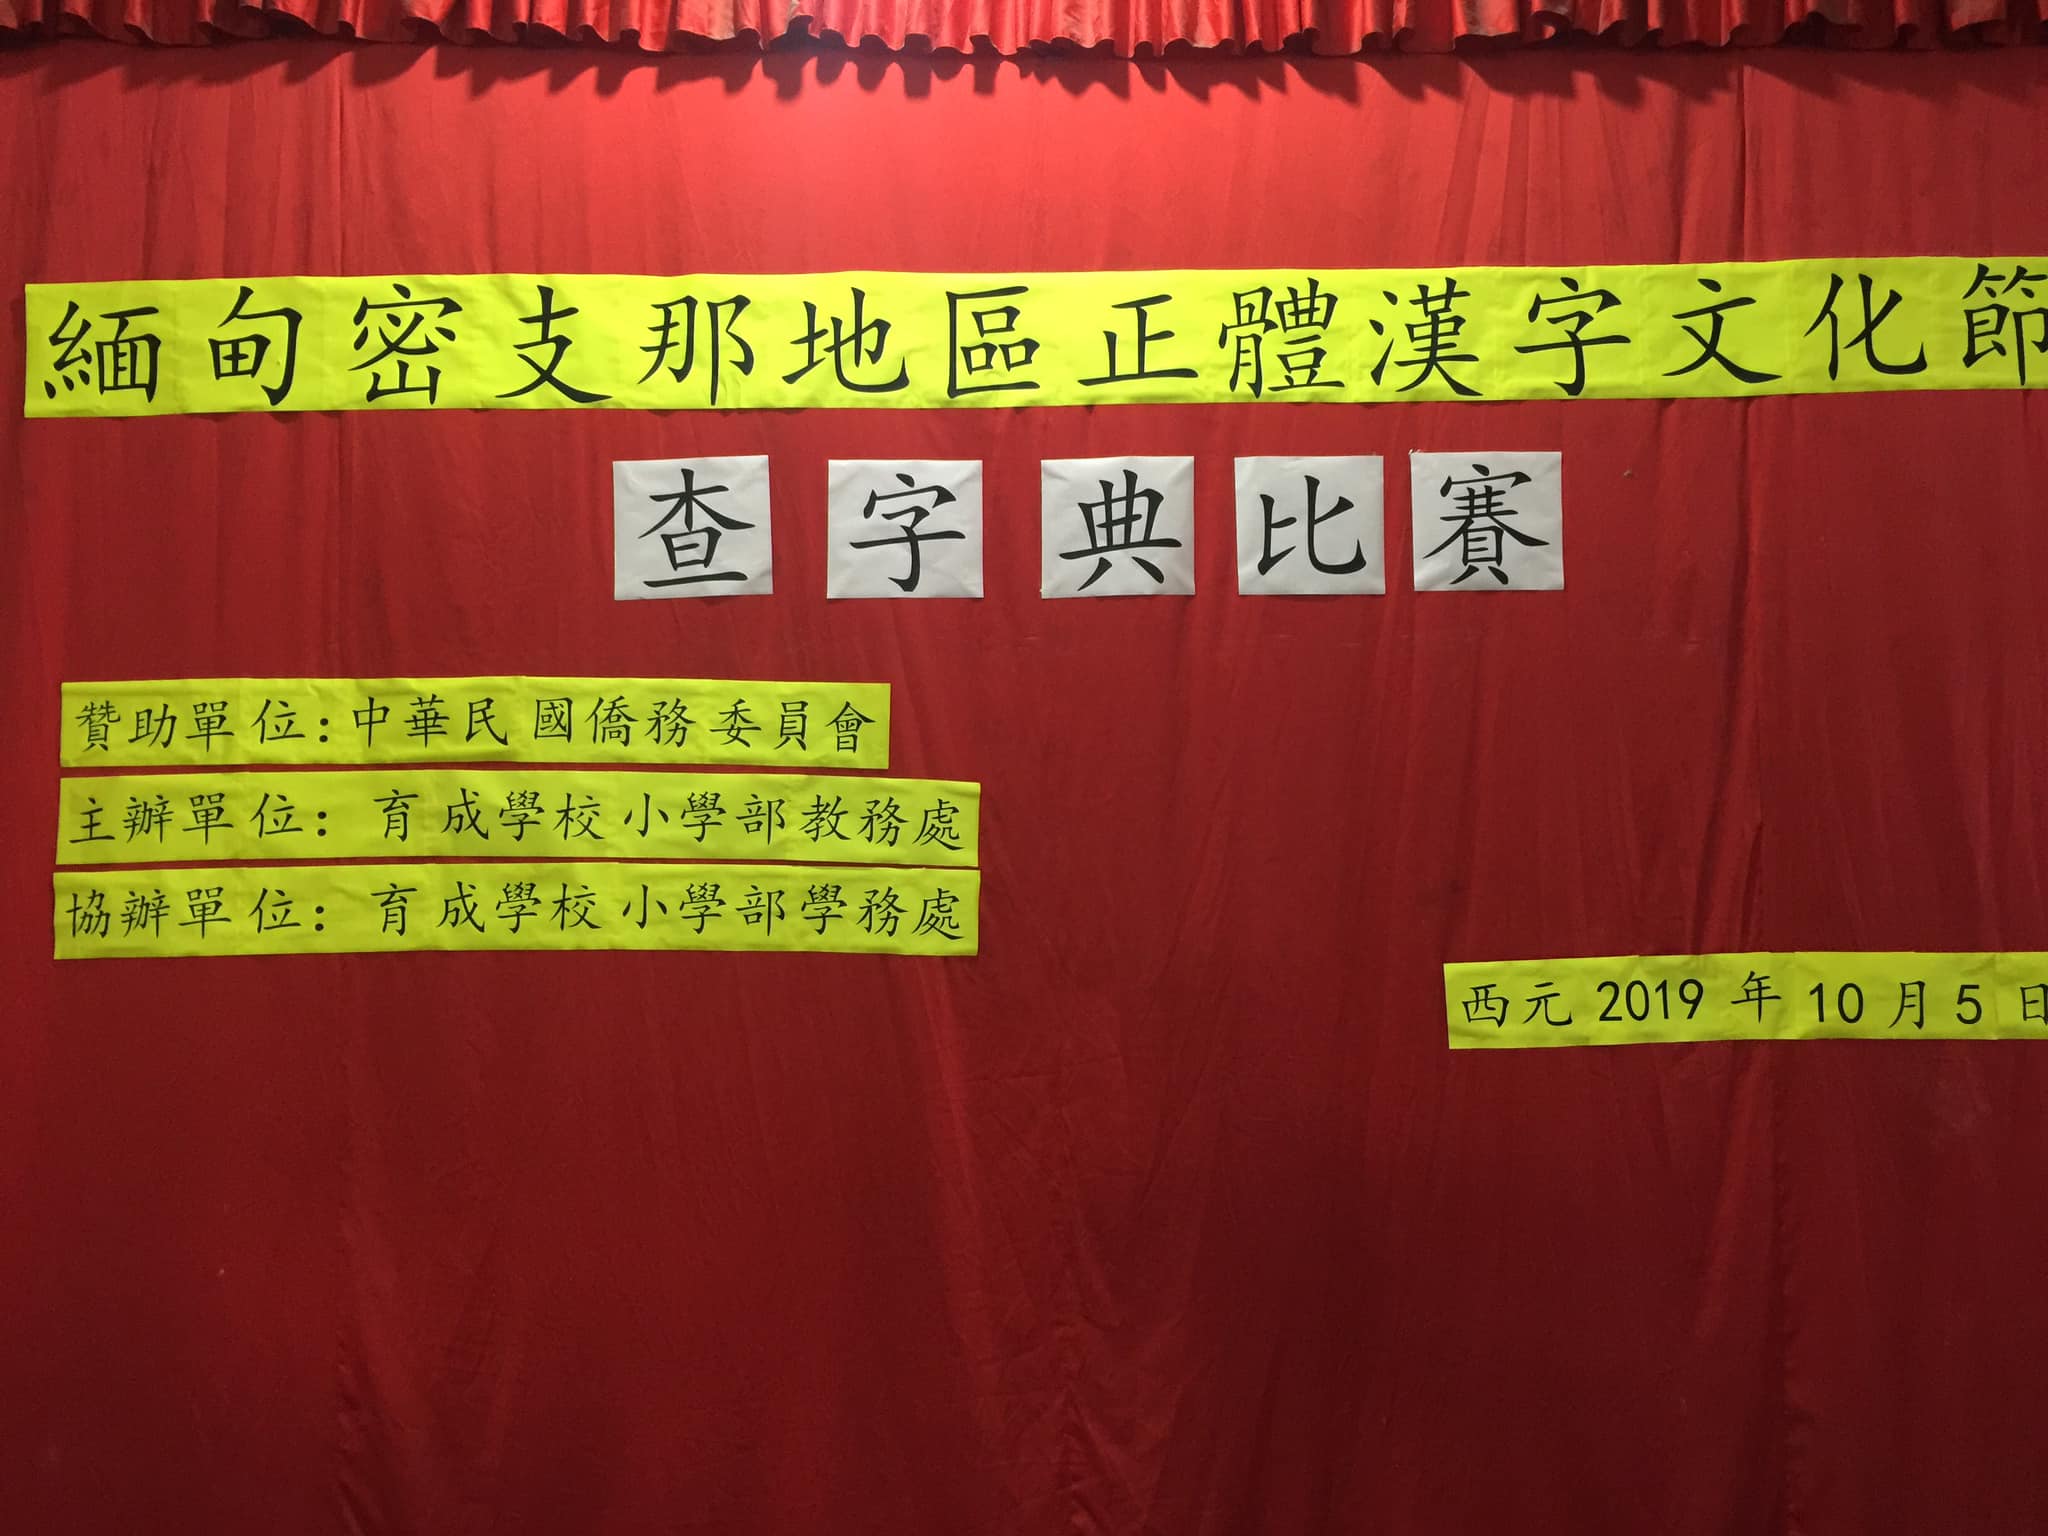 緬甸密支那地區正體漢字文化節
查字典比賽
贊助單位:中華民國僑務委員會
主辦單位:育成學校小學部教務處
協辦單位:育成學校小學部學務處
西元 2019 年 10 月 5 日